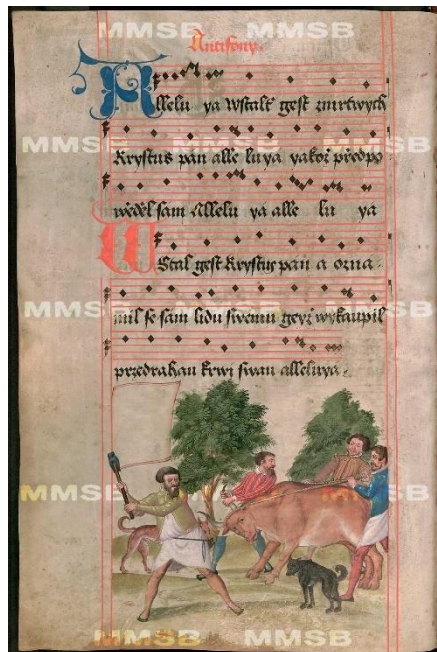 MMSB MMSB
Antifony.
Allelu ya Wstalt gest zmrtwych
Krystus pan alle luya yakoz předpo
MMSB MMSB MMSB
wěděl sam Allelu ya alle lu ya
WStal gest Krystus pan a ozna-
MMSB MMSB MMSB
mil se sam lidu swemu geyž wykaupil
przedrahau krwi swau alleluya.
MMSB MMSB MMSB
MMSB MMSB